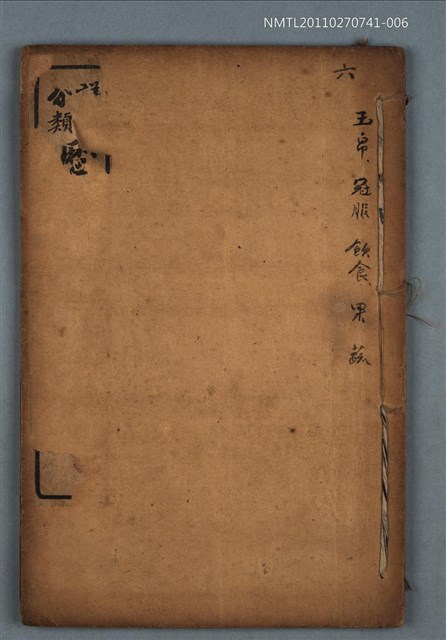 NMTL20110270741-006
六
玉帛、冠服 飲食、果蔬
分類